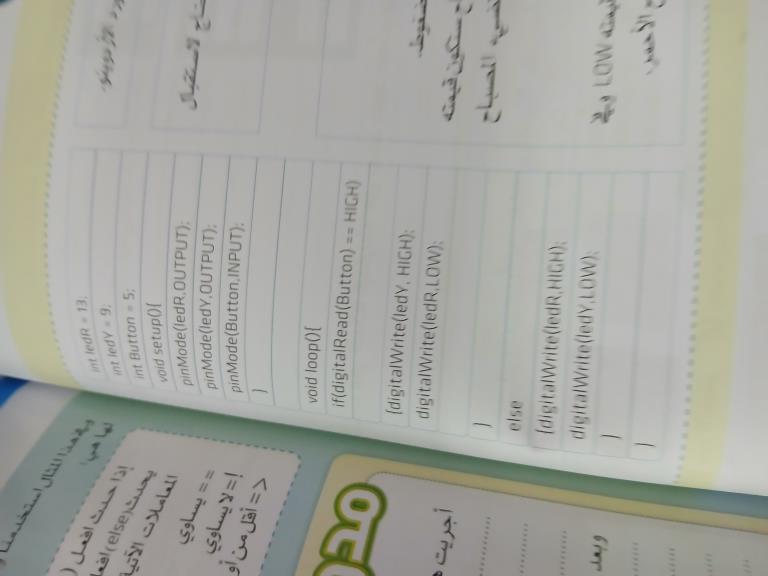 int ledR = 13;
int ledY = 9;
int Button = 5;
void setup(){
pinMode(ledR,OUTPUT);
pinMode(ledY,OUTPUT);
pinMode(Button,INPUT);
}
void loop(){
if(digitalRead(Button) == HIGH)
{digitalWrite(ledY, HIGH);
digitalWrite(ledR,LOW);
}
else
{digitalWrite(ledR,HIGH);
digitalWrite(ledY,LOW);
}
}
لاستقبال
ستكون قيمته
المصباح
LOW
الأحمر.
لها هي:
إذا حدث افعل (
يحدث (else)
المعاملات
== يساوي
!= لا يساوي
<= أقل من أو
أجريت
وبعد